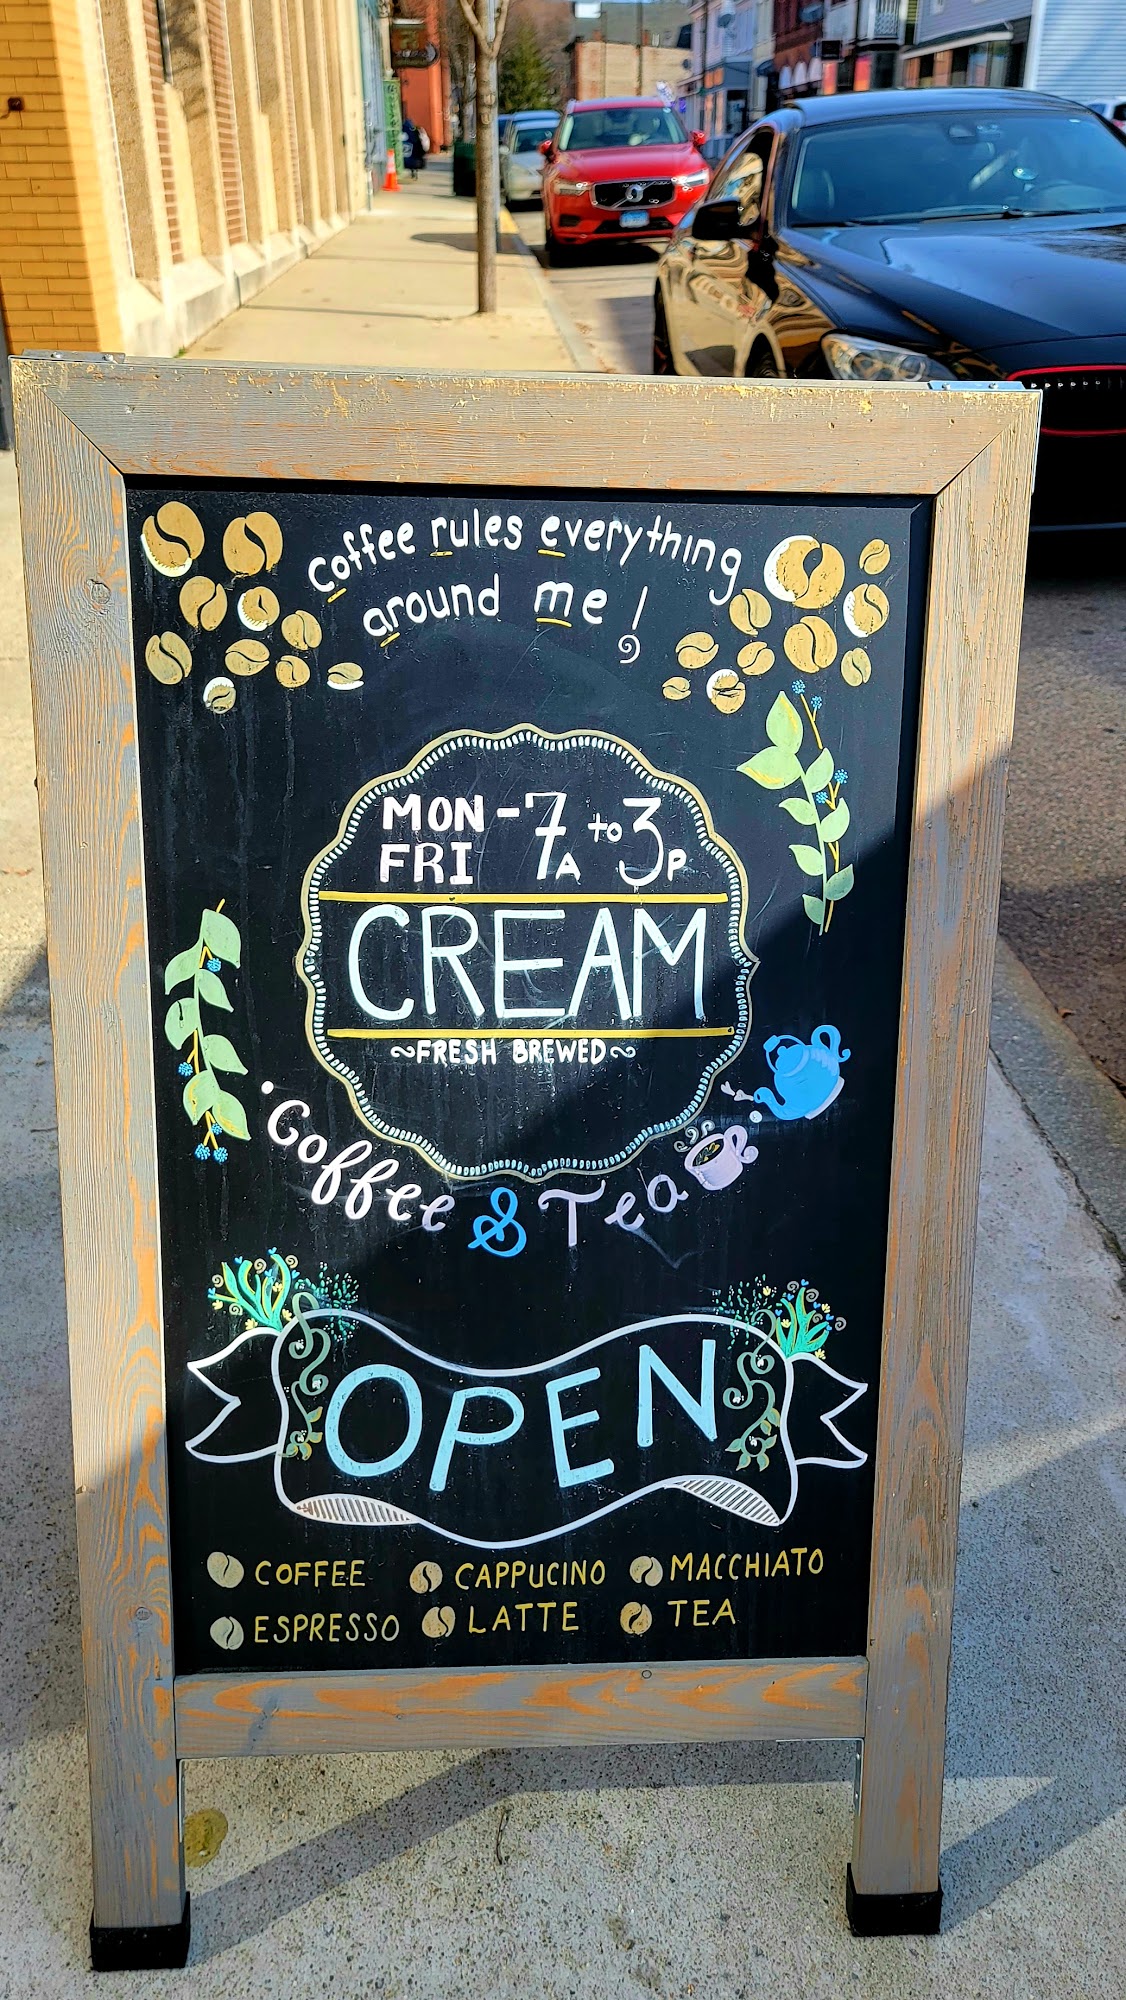 Coffee rules everything
around me!
MON - 7A to 3P
FRI
CREAM
~FRESH BREWED~
Coffee & Tea
OPEN
COFFEE CAPPUCINO MACCHIATO
ESPRESSO LATTE TEA